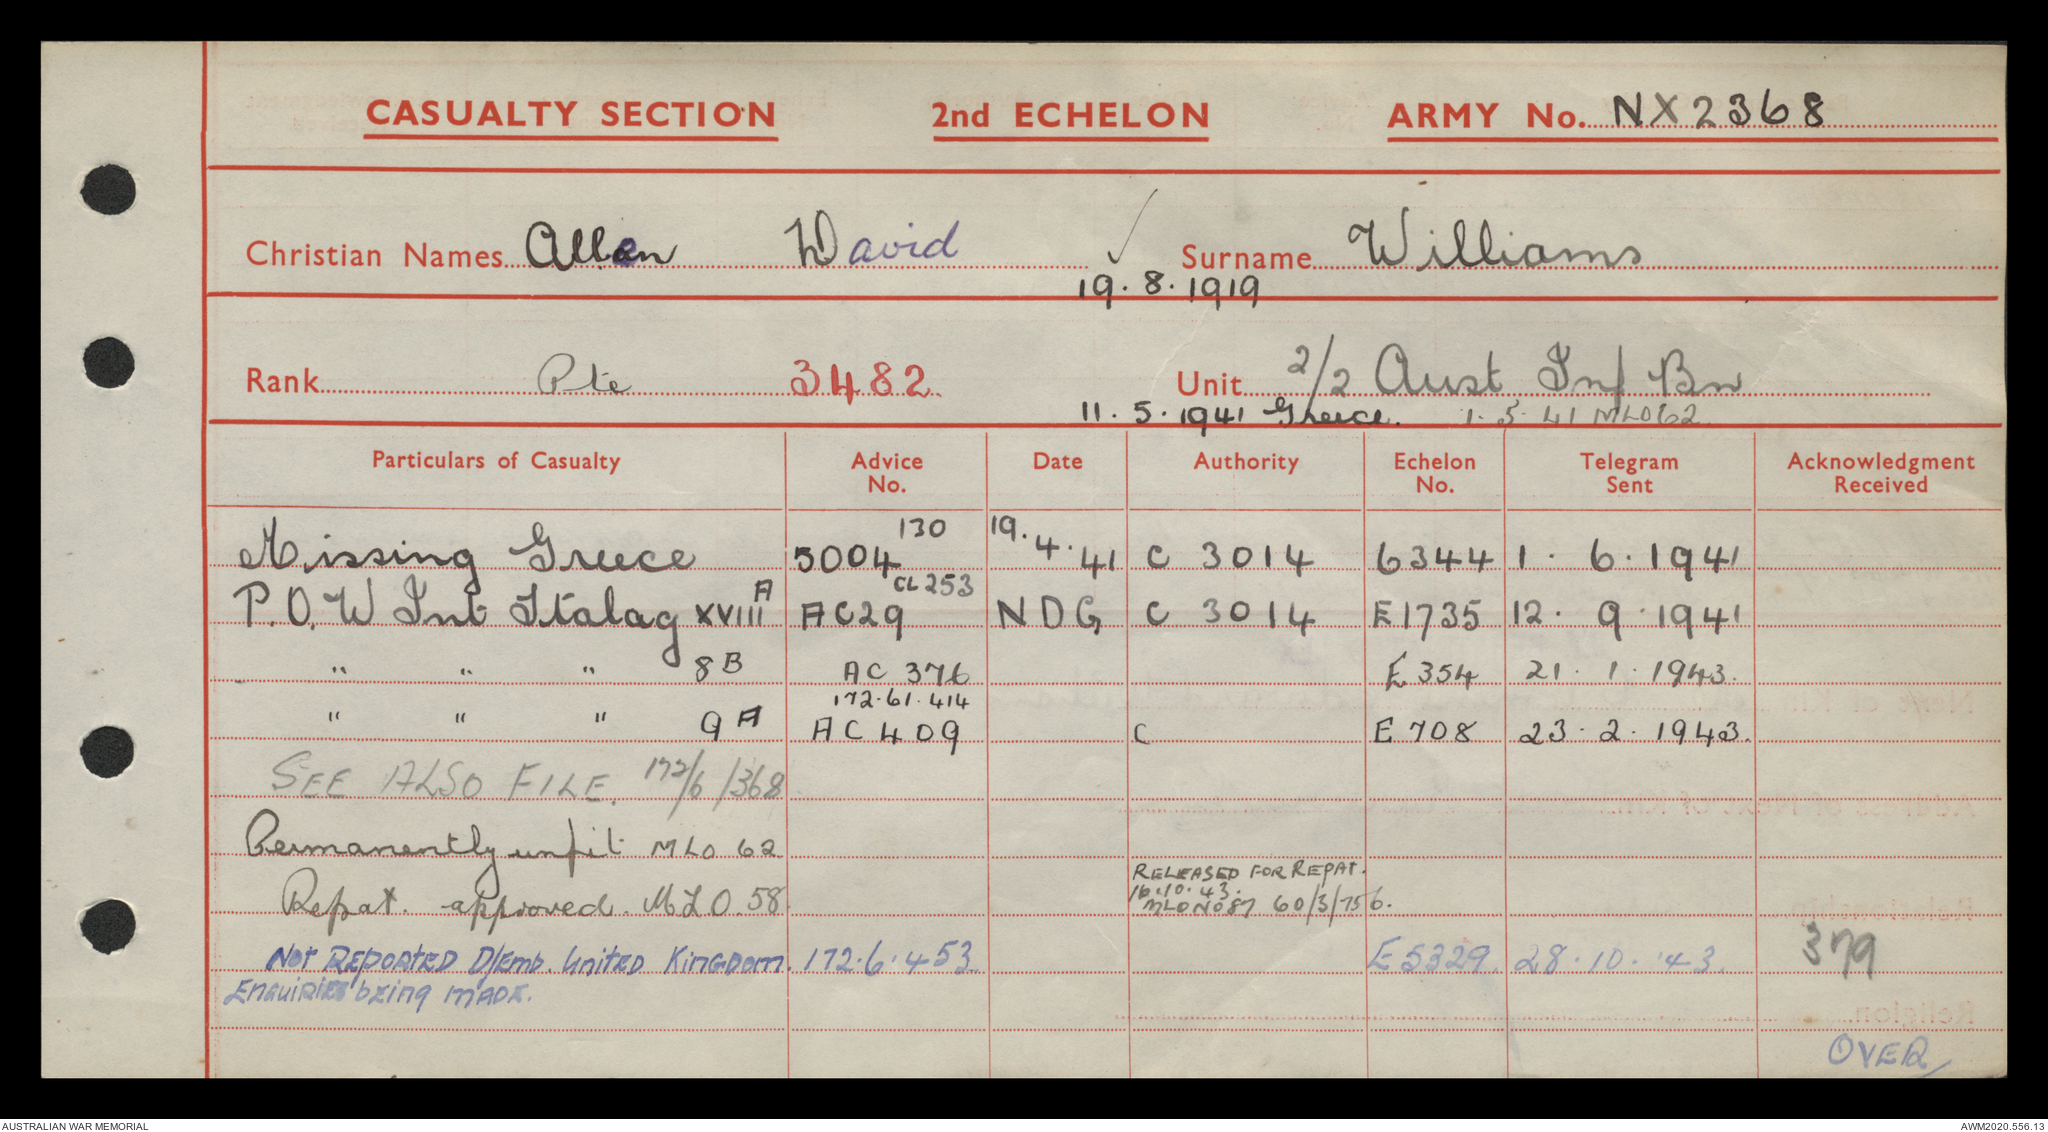 CASUALTY SECTION 2nd ECHELON ARMY No. NX2368
Christian Names Allen David Surname Williams
19.8.1919
Rank Pte 3482 Unit 2/2 Aust Inf Bn
11.5.1941 Greece. 1.5.41 MLO62
Particulars of Casualty Advice No. Date Authority Echelon No. Telegram Sent Acknowledgment Received
130
Missing Greece 5004 19.4.41 C 3014 6344 1. 6. 1941
CL253
P.O.W Int Stalag XVIIIA AC29 NDG C 3014 E1735 12. 9. 1941
" " " 8B AC 376 E354 21. 1. 1943.
172.61.414
" " " 9A AC 409 C E708 23. 2. 1943.
SEE ALSO FILE. 172/6/368
Permanently unfit MLO 62
RELEASED FOR REPAT.
16.10.43.
Repat. approved. MLO.58 MLO NO87 60/3/756.
NOT REPOATED D/Emb. UNITED KINGDOM. 172.6.453 E5329. 28.10.'43. 379
ENQUIRIES being MADE.
OVER
AUSTRALIAN WAR MEMORIAL AWM2020.556.13